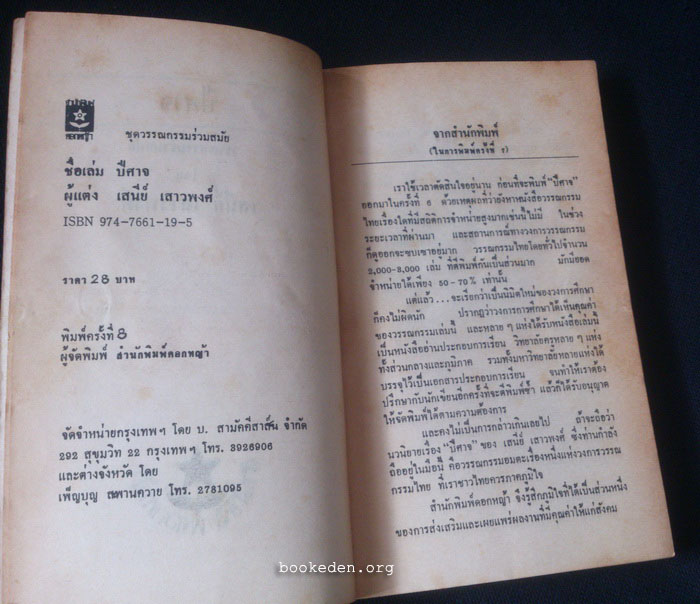 ชุดวรรณกรรมร่วมสมัย
ชื่อเล่ม ปีศาจ
ผู้แต่ง เสนีย์ เสาวพงศ์
ISBN 974-7661-19-5
ราคา 28 บาท
พิมพ์ครั้งที่ 8
ผู้จัดพิมพ์ สำนักพิมพ์ดอกหญ้า
จัดจำหน่ายกรุงเทพฯ โดย บ. สามัคคีสาส์น จำกัด
292 สุขุมวิท 22 กรุงเทพฯ โทร. 3926906
และต่างจังหวัด โดย
เพ็ญบุญ สะพานควาย โทร. 2781095
จากสำนักพิมพ์
(ในการพิมพ์ครั้งที่ ๗)
เราใช้เวลาตัดสินใจอยู่นาน ก่อนที่จะพิมพ์ "ปีศาจ"
ออกมาในครั้งที่ 6 ด้วยเหตุผลที่ว่ายังหาหนังสือวรรณกรรม
ไทยเรื่องใดที่มีสถิติการจำหน่ายสูงมากเช่นนี้ไม่มี ในช่วง
ระยะเวลาที่ผ่านมา และสถานการณ์ทางวงการวรรณกรรม
ก็ดูออกจะซบเซาอยู่มาก วรรณกรรมไทยโดยทั่วไปจำนวน
2,000-3,000 เล่ม ที่ตีพิมพ์กันเป็นส่วนมาก มักมียอด
จำหน่ายได้เพียง 50-70% เท่านั้น
แต่แล้ว...จะเรียกว่าเป็นนิมิตใหม่ของวงการศึกษา
ก็คงไม่ผิดนัก ปรากฏว่าวงการการศึกษาได้เห็นคุณค่า
ของวรรณกรรมเล่มนี้ และหลายๆ แห่งได้รับหนังสือเล่มนี้
เป็นหนังสืออ่านประกอบการเรียน วิทยาลัยครูหลายๆ แห่ง
ทั้งส่วนกลางและภูมิภาค รวมทั้งมหาวิทยาลัยหลายแห่งได้
บรรจุไว้เป็นเอกสารประกอบการเรียน จนทำให้เราต้อง
ปรึกษากับนักเขียนอีกครั้งที่จะตีพิมพ์ซ้ำ แล้วก็ได้รับอนุญาต
ให้จัดพิมพ์ได้ตามความต้องการ
และคงไม่เป็นการกล่าวเกินเลยไป ถ้าจะถือว่า
นวนิยายเรื่อง "ปีศาจ" ของ เสนีย์ เสาวพงศ์ ซึ่งท่านกำลัง
ถืออยู่ในมือนี้ คือวรรณกรรมอมตะเรื่องหนึ่งแห่งวงการวรรณ
กรรมไทย ที่เราชาวไทยควรภาคภูมิใจ
สำนักพิมพ์ดอกหญ้า จึงรู้สึกภูมิใจที่ได้เป็นส่วนหนึ่ง
ของการส่งเสริมและเผยแพร่ผลงานที่มีคุณค่าให้แก่สังคม
bookeden.org